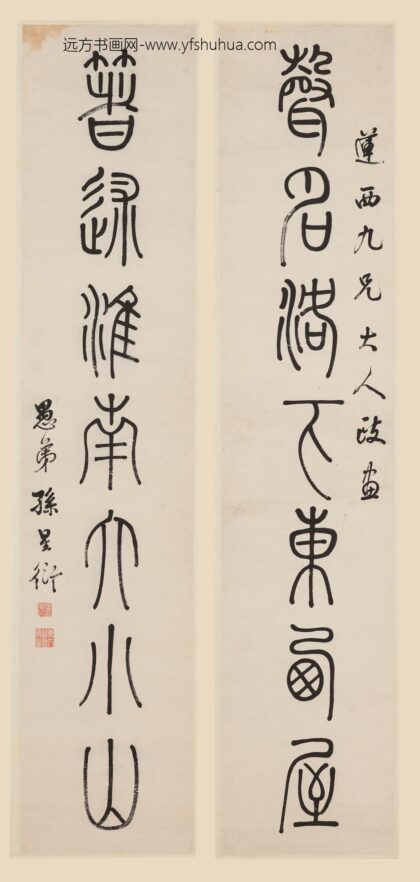 远方书画网-www.yfshuhua.com
蓮西九兄大人政
聲名洛下東西屋
箸述淮南大小山
愚弟孫星衍